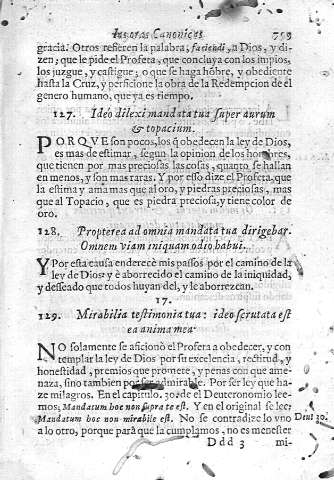 Ins oras Canonicas 759
gracia. Otros refieren la palabra, faciendi, a Dios, y di-
zen; que le pide el Profeta, que concluya con los impios,
los juzgue, y castigue; o que se haga hõbre, y obediente
hasta la Cruz, y perficione la obra de la Redempcion del
genero humano, que ya es tiempo.
127. Ideo dilexi mandata tua super aurum
& topacium.
PORQVE son pocos, los q̃ obedecen la ley de Dios,
es mas de estimar, segun la opinion de los hombres,
que tienen por mas preciosas las cosas, quanto se hallan
en menos, y son mas raras. Y por esso dize el Profeta, que
la estima y ama mas que al oro, y piedras preciosas, mas
que al Topacio, que es piedra preciosa, y tiene color de
oro.
128. Propterea ad omnia mandata tua dirigebar.
Omnem viam iniquam odio habui.
Y Por esta causa enderecè mis passos por el camino de la
ley de Dios, y è aborrecido el camino de la iniquidad,
y desseado que todos huyan del, y le aborrezcan.
17.
129. Mirabilia testimonia tua: ideo scrutata est
ea anima mea.
NO solamente se aficionò el Profeta a obedecer, y con-
templar la ley de Dios por su excelencia, rectitud, y
honestidad, premios que promete, y penas con que ame-
naza, sino tambien por ser admirable. Por ser ley que ha-
ze milagros. En el capitulo. 30. de el Deuteronomio lee-
mos; Mandatum hoc non supra te est. Y en el original se lee;
Mandatum hoc non mirabile est. No se contradize lo vno Deut 30.
a lo otro, porque para que la cumplamos, no es menester
Ddd 3 mi-